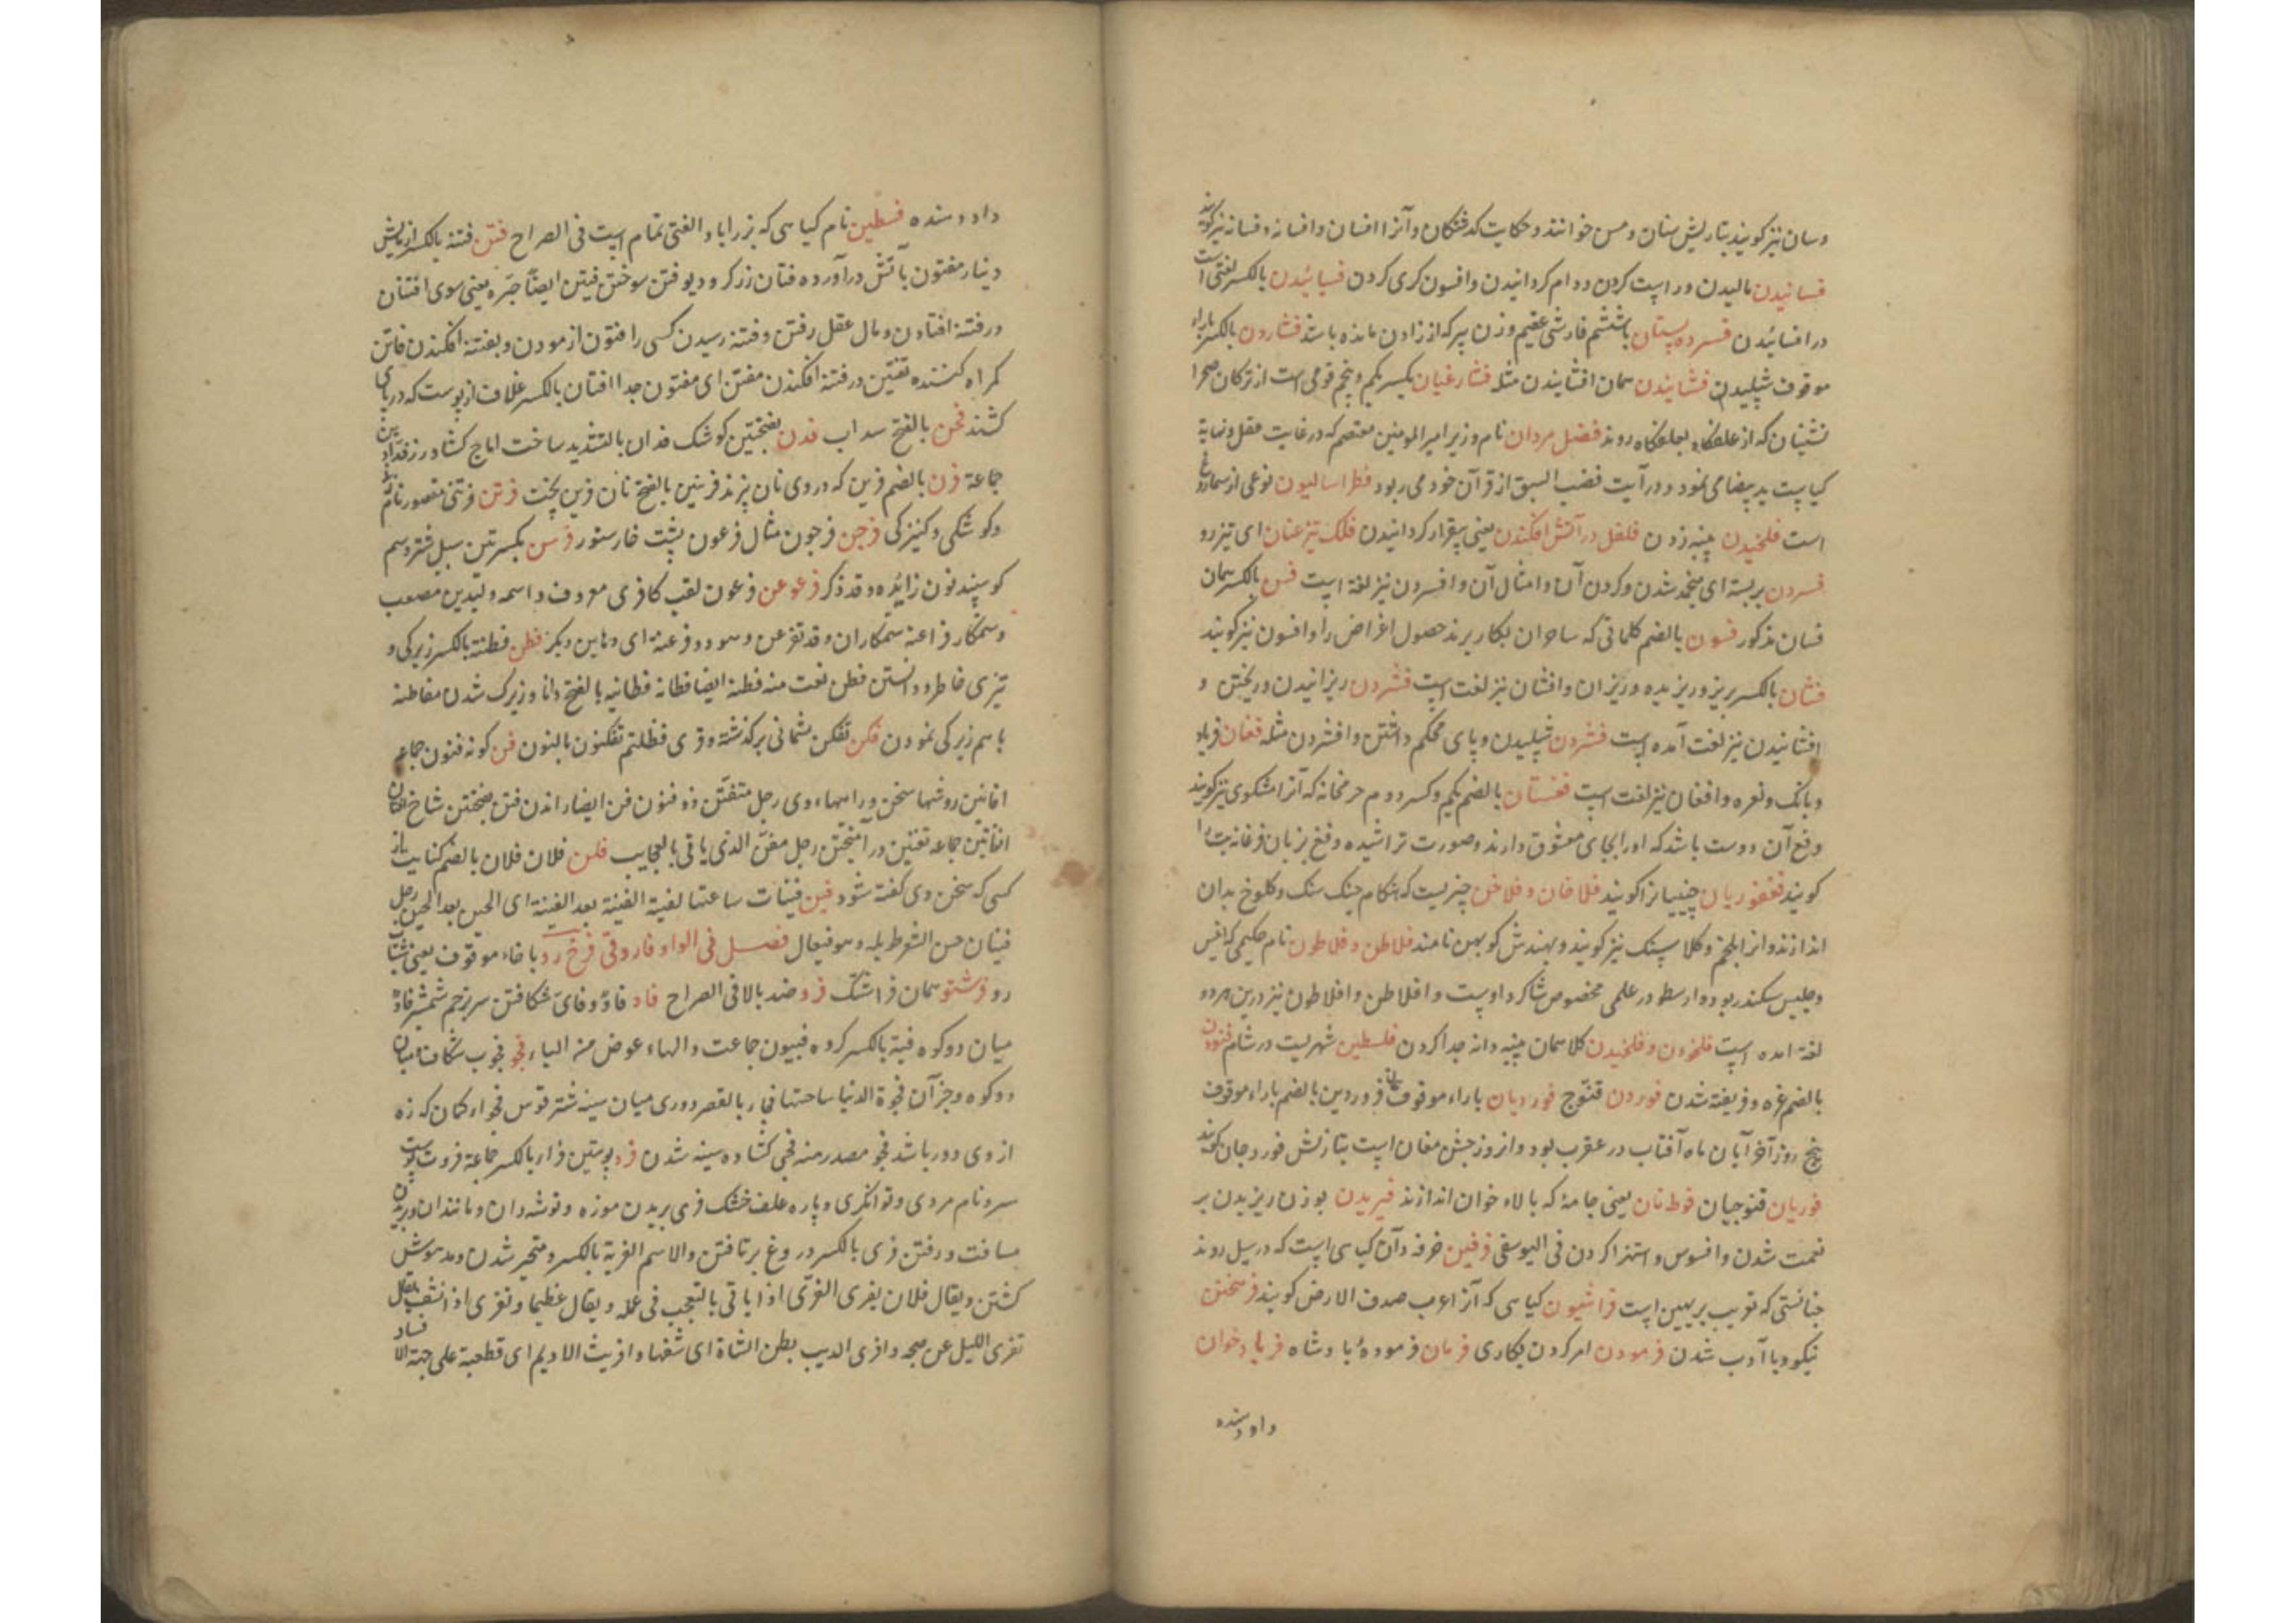 وسان نیز کویند بتازیش سنان ومسن خوانند و حکایت کذشتکان وآنرا افسان وافسانه وفسانه نیز کویند
فسانیدن مالیدن و راست کردن و رام کردانیدن وافسون کری کردن فسائیدن بالکسر لغتی است
در افسائیدن فسرده پستان باششم فارسی عقیم و زن پیر که از زادن مانده باشد فشاردن بالکسر باراء
موقوف شپلیدن فشانیدن همان افشانیدن مثله فشارغیان بکسر یکم و پنجم قومی است از ترکان صحرا
نشینان که از علفکاه بعلفکاه روند فضل مردان نام وزیر امیر المومنین معتصم که در غایت عقل ونهایة
کیاست ید بیضا می نمود و در آیت قصب السبق از قرآن خود می ربود فطراسالیون نوعی از سماروغ
است فلخیدن پنبه زدن فلفل در آتش افکندن یعنی بیقرار کردانیدن فلک تیز عنان ای تیزرو
فسردن بربسته ای منجمد شدن و کردن آن وامثال آن وافسردن نیز لغة است فسن بالکسر همان
فسان مذکور فسون بالضم کلماتی که ساحران بکار برند حصول اغراض را وافسون نیز کویند
فشان بالکسر بریز و ریزیده وریزان وافشان نیز لغت است فشردن ریزانیدن و ریختن و
افشانیدن نیز لغت آمده است فشردن شپلیدن و پای محکم داشتن وافشردن مثله فغان فریاد
وبانک ونعره وافغان نیز لغت است فغستان بالضم یکم وکسر دوم حرمخانه که آنرا مشکوی نیز کویند
وفغ آن دوست باشد که اورا بجای معشوق دارند وصورت تراشیده وفغ بزبان فرغانه بت را
کویند فغفوریان چینیانرا کویند فلاخان و فلاخن چیزیست که هنکام جنک سنک وکلوخ بدان
اندازند وانرا بلخم وکلاسنک نیز کویند و بهندش کوبهن نامند فلاطن و فلاطون نام حکیمی که انیس
وجلیس سکندر بود وارسطو در علمی مخصوص شاکرد اوست وافلاطن وافلاطون نیز درین هر دو
لغة امده است فلخودن و فلخیدن کلاهمان پنبه دانه جدا کردن فلسطین شهریست در شام فنودن
بالضم غره و فریفته شدن فوردن قنوج فوردیان باراء موقوف فروردین بالضم باراء موقوف
پنج روز آخر آبان ماه آفتاب در عقرب بود وانروز جشن مغان است بتازیش فوردجان کویند
فوریان قنوجیان فوطنان یعنی جامهٔ که بالاء خوان اندازند فیریدن بوزن ریزیدن بر
نعمت شدن وافسوس واستهزا کردن فی الیوسفی فرفین خرفه وآن کیاهی است که در سیل روند
چنانستی که تو یب بر بهین است فراشیون کیاهی که آنرا عرب صدف الارض کویند فرهختن
نیکو و با آدب شدن فرمودن امر کردن بکاری فرمان فرمودهٔ پادشاه فریادخوان
دادد هنده
داد دهنده فسطین نام کیاهی که بزر اباد الغتی تمام است فی الصراح فتن فتنه بالکسر ازمایش
دینار مفتون باتش درآورده فتان زرکر ودیو فتن سوختن فیتن ایضا حره یعنی سوی افتتان
در فتنه افتادن ومال عقل رفتن وفتنه رسیدن کسی را فتون ازمودن و بفتنه افکندن فاتن
کمراه کننده تفتین در فتنه افکندن مفتن ای مفتون جدا افتان بالکسر غلاف از پوست که در پای
کشند فحن بالفتح سداب فدن بفتحتین کوشک فدان بالتشدید ساخت اماج کشاورز فدادین
جماعة فرن بالضم فرین که در وی نان پزند فرینین بالفتح نان فرین پخت فرتن فرتنی مقصور نام
وکوشکی و کنیزکی فرجن فرجون مثال فرعون پشت خار ستور فرسن بکسرتین سبیل شتر وسم
کوسپند نون زایده وقد ذکر فرعن فرعون لقب کافری معروف واسمه ولید بن مصعب
وستمکار فراعنه ستمکاران وقد تفرعن وهو ذو فرعنة ای دهاء بن دیکر فطن فطنة بالکسر زیرکی و
تیزی خاطر و دانستن فطن نعت منه فطنة ایضا فطانه فطانیه بالفتح دانا و زیرک شدن مفاطنه
باهم زیرکی نمودن فکن تفکن پشمانی برکذشته و قری فظلتم تفکنون بالنون فن کونه فنون جماعه
افانین روشها سخن و راهها وی رجل متفنن ذو فنون فن ایضا راندن فنن بفتحتین شاخ افنان
افانین جماعه تفنین در آمیختن رجل مفن الذی یاتی بالعجایب فلن فلان فلان بالضم کنایت از
کسی که سخن وی کفته شود فین فینات ساعتها لقیة الفینة بعد الفینة ای الحین بعد الحین رجل
فینان حسن الشعر طویله وهو فیعال فصل فی الواو فاروقی فرخ رو با خاء موقوف یعنی شتاب
رو فرشتو همان فراشتک فرو ضد بالا فی الصراح فاو فاوٌ وفایٌ شکافتن سر بزخم شمشیر فاوٌ
میان دو کوه فیة بالکسر کروه فییون جماعت والهاء عوض من الیاء فجو فجوه شکاف ومیان
دو کوه وجز آن فجوة الدنیا ساحتها فجا بالقصر دوری میان سینه شتر قوس فجواء کمان که زه
از وی دور باشد فجو مصدر منه فجی کشاده سینه شدن فرو پوستین فراء بالکسر جماعة فروت پوست
سر ونام مردی وتوانکری وپاره علف خشک فری بریدن موزه وتوشه دان ومانندان وبریدن
مسافت ورفتن فری بالکسر دروغ بر تافتن والاسم الفریة بالکسر ومتحیر شدن ومدهوش
کشتن ویقال فلان یفری الفری اذا یاتی بالتعجب فی عمله ویقال عظیما وتفری اذا انشق یقال
تفری اللیل عن صبحه وافری الذیب بطن الشاة ای شقها وافریت الادیم ای قطعته علی جهة الافساد